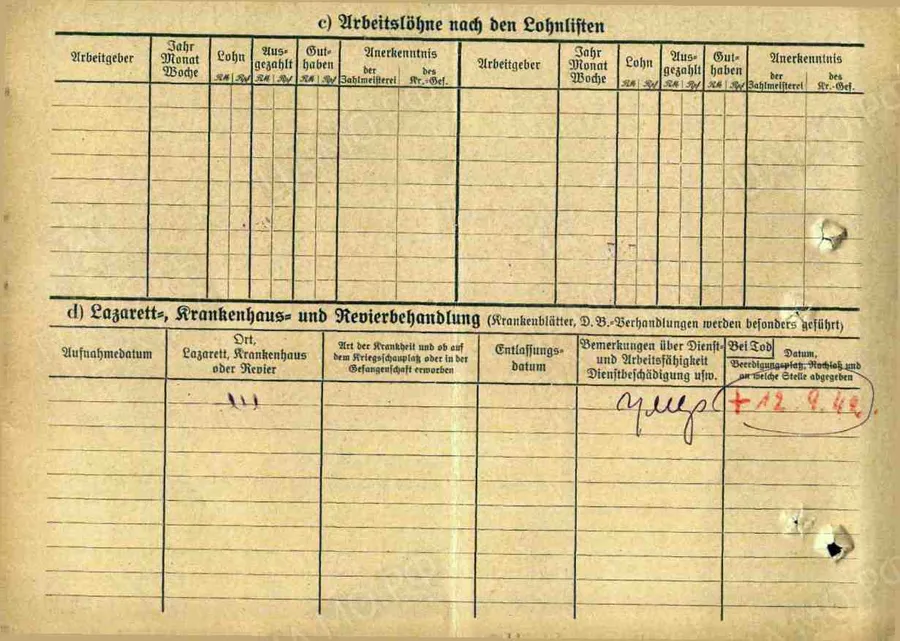 c) Arbeitslöhne nach den Lohnlisten
Arbeitgeber
Jahr
Monat
Woche
Lohn
RM Rpf
Aus-
gezahlt
RM Rpf
Gut-
haben
RM Rpf
Anerkenntnis
der
Zahlmeisterei
des
Kr.-Gef.
Arbeitgeber
Jahr
Monat
Woche
Lohn
RM Rpf
Aus-
gezahlt
RM Rpf
Gut-
haben
RM Rpf
Anerkenntnis
der
Zahlmeisterei
des
Kr.-Gef.
d) Lazarett-, Krankenhaus- und Revierbehandlung (Krankenblätter, D. B.-Verhandlungen werden besonders geführt)
Aufnahmedatum
Ort,
Lazarett, Krankenhaus
oder Revier
Art der Krankheit und ob auf
dem Kriegsschauplatz oder in der
Gefangenschaft erworben
Entlassungs-
datum
Bemerkungen über Dienst-
und Arbeitsfähigkeit
Dienstbeschädigung usw.
Bei Tod
Datum,
Beerdigungsplatz, Nachlaß und
an welche Stelle abgegeben
умер
+ 12. 9. 42.